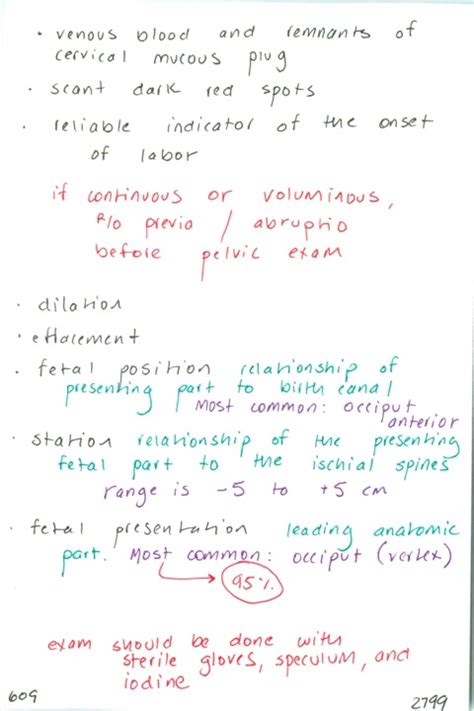 • venous blood and remnants of
cervical mucous plug
• scant dark red spots
• reliable indicator of the onset
of labor
if continuous or voluminous,
R/o previa / abruptio
before pelvic exam
• dilation
• effacement
• fetal position relationship of
presenting part to birth canal
Most common: occiput
anterior
• station relationship of the presenting
fetal part to the ischial spines
range is -5 to +5 cm
• fetal presentation leading anatomic
part. Most common: occiput (vertex)
→ 95%
exam should be done with
sterile gloves, speculum, and
iodine
609
2799